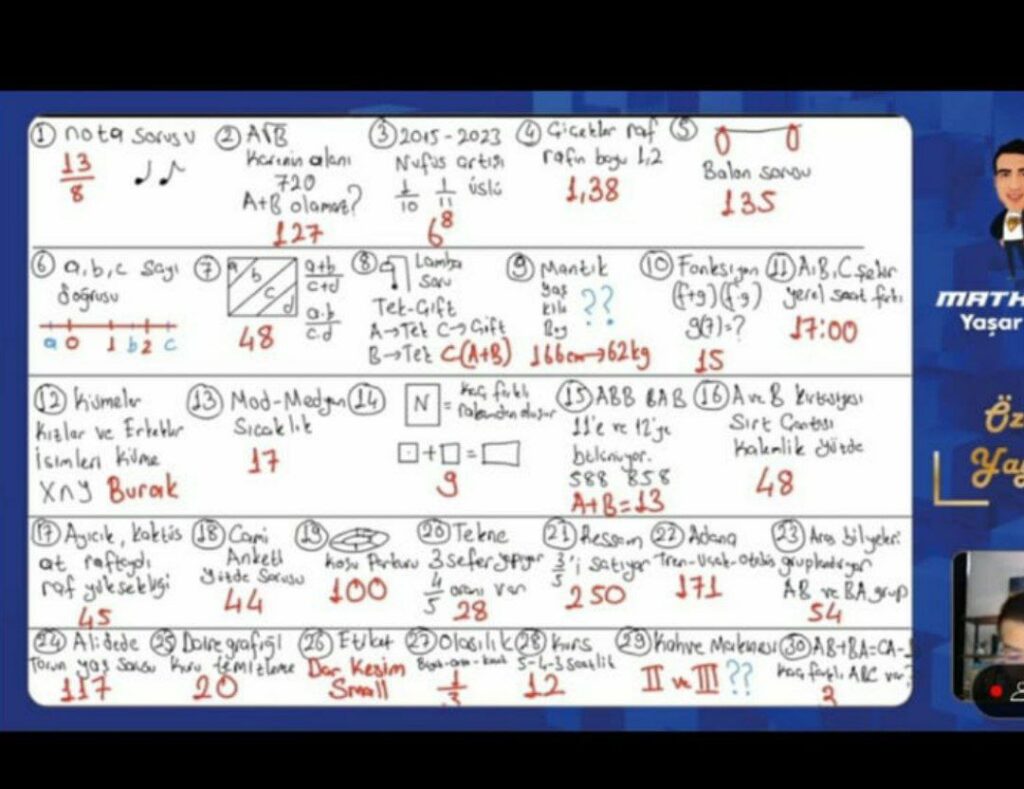 1 nota sorusu
13/8
2 A√B
Karenin alanı
720
A+B olamaz?
127
3 2015-2023
Nüfus artışı
1/10 1/11 üslü
6^8
4 Çiçekler raf
rafın boyu 1,2
1,38
5
Balon sorusu
135
6 a,b,c sayı
doğrusu
a 0 1 b 2 c
7 a b c d
a+b/c+d
a.b/c.d
48
8 Lamba
Soru
Tek-Çift
A→Tek C→Çift
B→Tek C(A+B)
9 Mantık
yaş
kilo
Boy
??
166cm→62kg
10 Fonksiyon
(f+g)(f-g)
g(7)=?
15
11 A,B,C şehir
yerel saat farkı
17:00
12 Kümeler
Kızlar ve Erkekler
İsimleri küme
X∩Y Burak
13 Mod-Medyan
Sıcaklık
17
14 N = kaç farklı
rakamdan oluşur
□+□=□
9
15 ABB BAB
11'e ve 12'ye
bölünüyor.
588 858
A+B=13
16 A ve B kırtasiyesi
Sırt Çantası
Kalemlik yüzde
48
17 Ayıcık, kaktüs
at raftaydı
raf yüksekliği
45
18 Cami
Anketi
yüzde Sorusu
44
19
Koşu Parkuru
100
20 Tekne
3 sefer yapıyor
4/5 oranı var
28
21 Ressam
3/5'i satıyor
250
22 Adana
Tren-Uçak-Otobüs
171
23 Ara bilyeleri
gruplandırıyor
AB ve BA grup
54
24 Ali dede
Torun yaş sorusu
117
25 Daire grafiği
Kuru temizleme
20
26 Etiket
Dar Kesim
Small
27 Olasılık
1/3
28 Kurs
5-4-3 Saatlik
12
29 Kahve Makinesi
II ve III ??
30 AB+BA=CA-
kaç farklı ABC var?
3
MATH
Yaşar
Öz
Yay